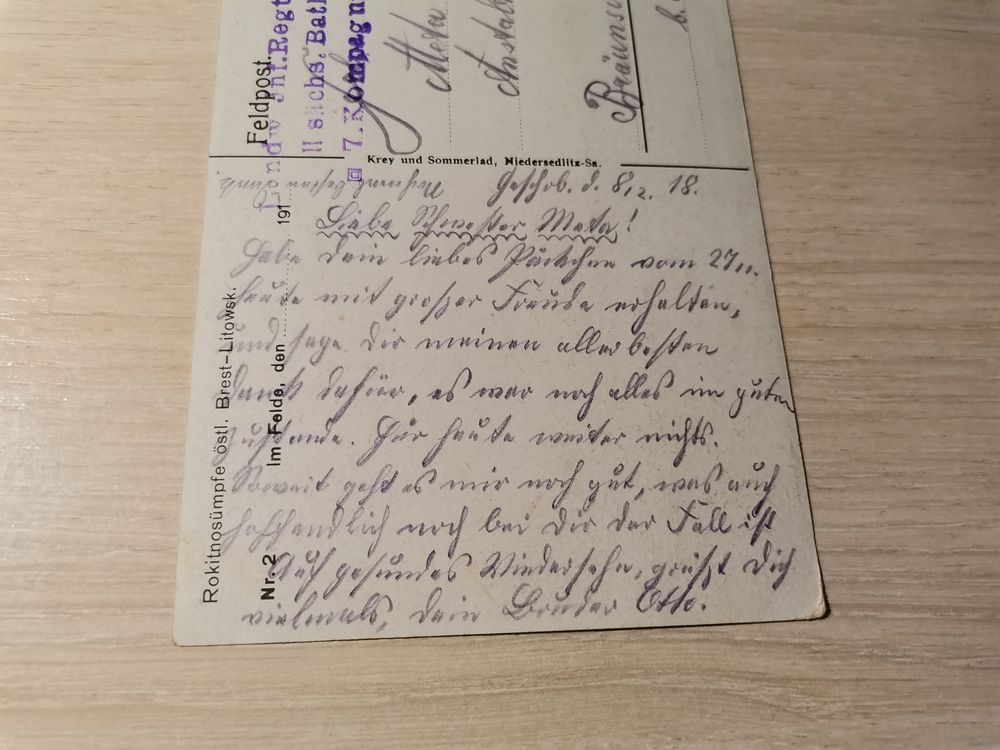 Feldpost.
Landw. Inf. Regt
II sächs. Batl
7. Kompagn
Meta
Krey und Sommerlad, Niedersedlitz-Sa.
Geschrb. d. 8/2. 18.
besten Dank.
Liebe Schwester Meta!
Habe Dein liebes Päckchen vom 27/1.
heute mit großer Freude erhalten,
und sage Dir meinen allerbesten
Dank dafür, es war noch alles im guten
Zustande. Für heute weiter nichts.
Soweit geht es mir noch gut, was auch
hoffendlich noch bei Dir der Fall ist
Auf gesundes Wiedersehn, grüßt Dich
vielmals, Dein Bruder Otto.
Nr. 2 Im Felde, den 191
Rokitnosümpfe östl. Brest-Litowsk.